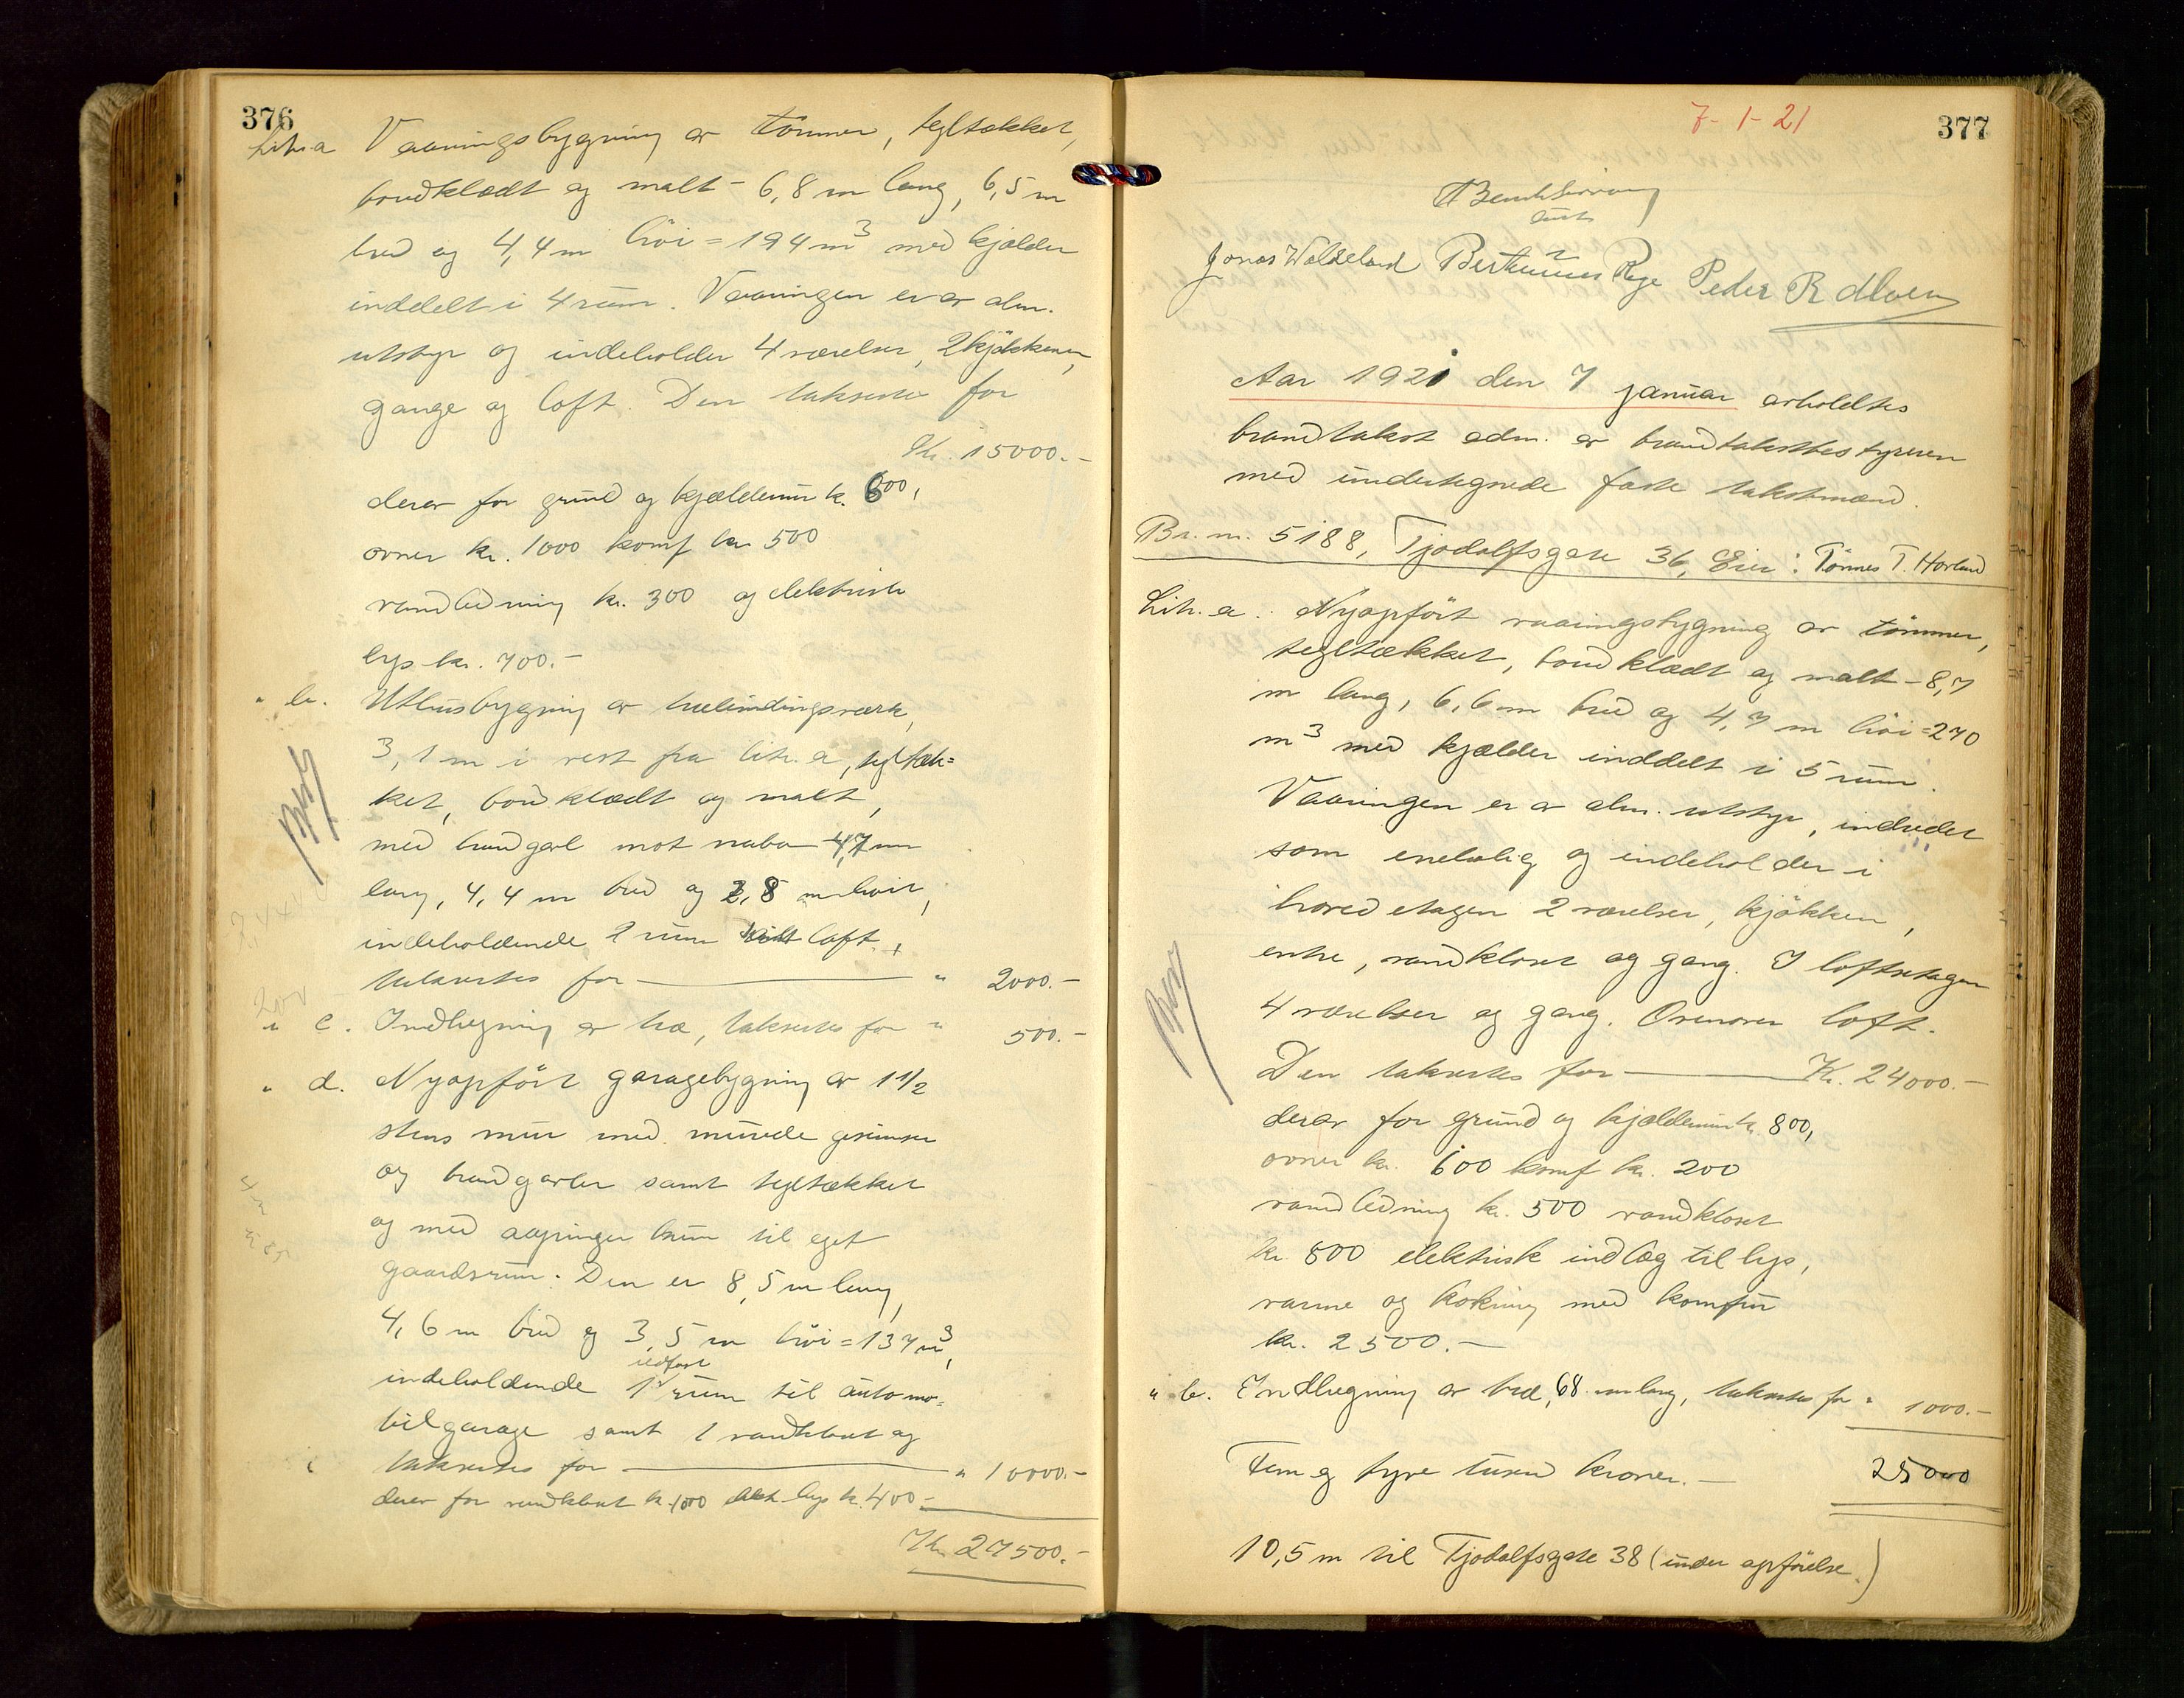 376
Litr. a Vaaningsbygning av tömmer, tegltækket,
bordklædt og malt - 6,8 m lang, 6,5 m
bred og 4,4 m höi = 194 m³ med kjælder
inddelt i 4 rum. Vaaningen er av alm.
utstyr og indeholder 4 værelser, 2 kjökkener,
gange og loft. Den takseres for
Kr. 15000.-
derav for grund og kjældermur k. 600,
ovner kr. 1000 komf kr 500
vandledning kr. 300 og elektrisk
lys kr. 700.-
" b. Uthusbygning av utelindingsverk,
3,1 m i vest fra litr. a, tegltæk=
ket, bordklædt og malt,
med brandgavl mot nabo 4,7 m
lang, 4,4 m bred og 2,8 m höit,
indeholdende 2 rum loft,
takseres for " 2000.-
" c. Indhegning av træ, takseres for " 500.-
" d. Nyopfört garagebygning av 1 1/2
stens mur med murede gesimser
og brandgavler samt tegltækket
og med aapninger kun til eget
gaardsrum. Den er 8,5 m lang,
4,6 m bred og 3,5 m höi = 137 m³,
indeholdende 1 ildfast rum til automo=
bilgarage samt 1 vandklosut og
takseres for " 10000.-
derav for vandklosut k. 400 elekt. lys k. 400.-
Kr. 27500.-
377
7-1-21
Jonas Waldeland Bertinius Rege Peder R
Aar 1921 den 7 januar avholdtes
brandtakst adm. av brandtakstbestyreren
med undertegnede faste takstmænd.
Br. nr. 5188, Tjodolfsgate 36, Eier: Tönnes T. Horland
Litr. a. Nyopfört vaaningsbygning av tömmer,
tegltækket, bordklædt og malt - 8,7
m lang, 6,6 m bred og 4,7 m höi = 270
m³ med kjælder inddelt i 5 rum.
Vaaningen er av alm. utstyr, indredet
som enebolig og indeholder i
hovedetagen 2 værelser, kjökken,
entre, vandkloset og gang. I loftsetagen
4 værelser og gang. Ovenover loft.
Den takseres for Kr. 24000.-
derav for grund og kjældermur k. 800,
ovner kr. 600 komf kr. 200
vandledning kr. 500 vandkloset
kr 800 elektrisk indlæg til lys,
varme og kokning med komfur
kr. 2500.-
" b. Indhegning av træ, 68 m lang, takseres for " 1000.-
Fem og tyve tusen kroner.- 25000
10,5 m til Tjodolfsgate 38 (under opförelse.)